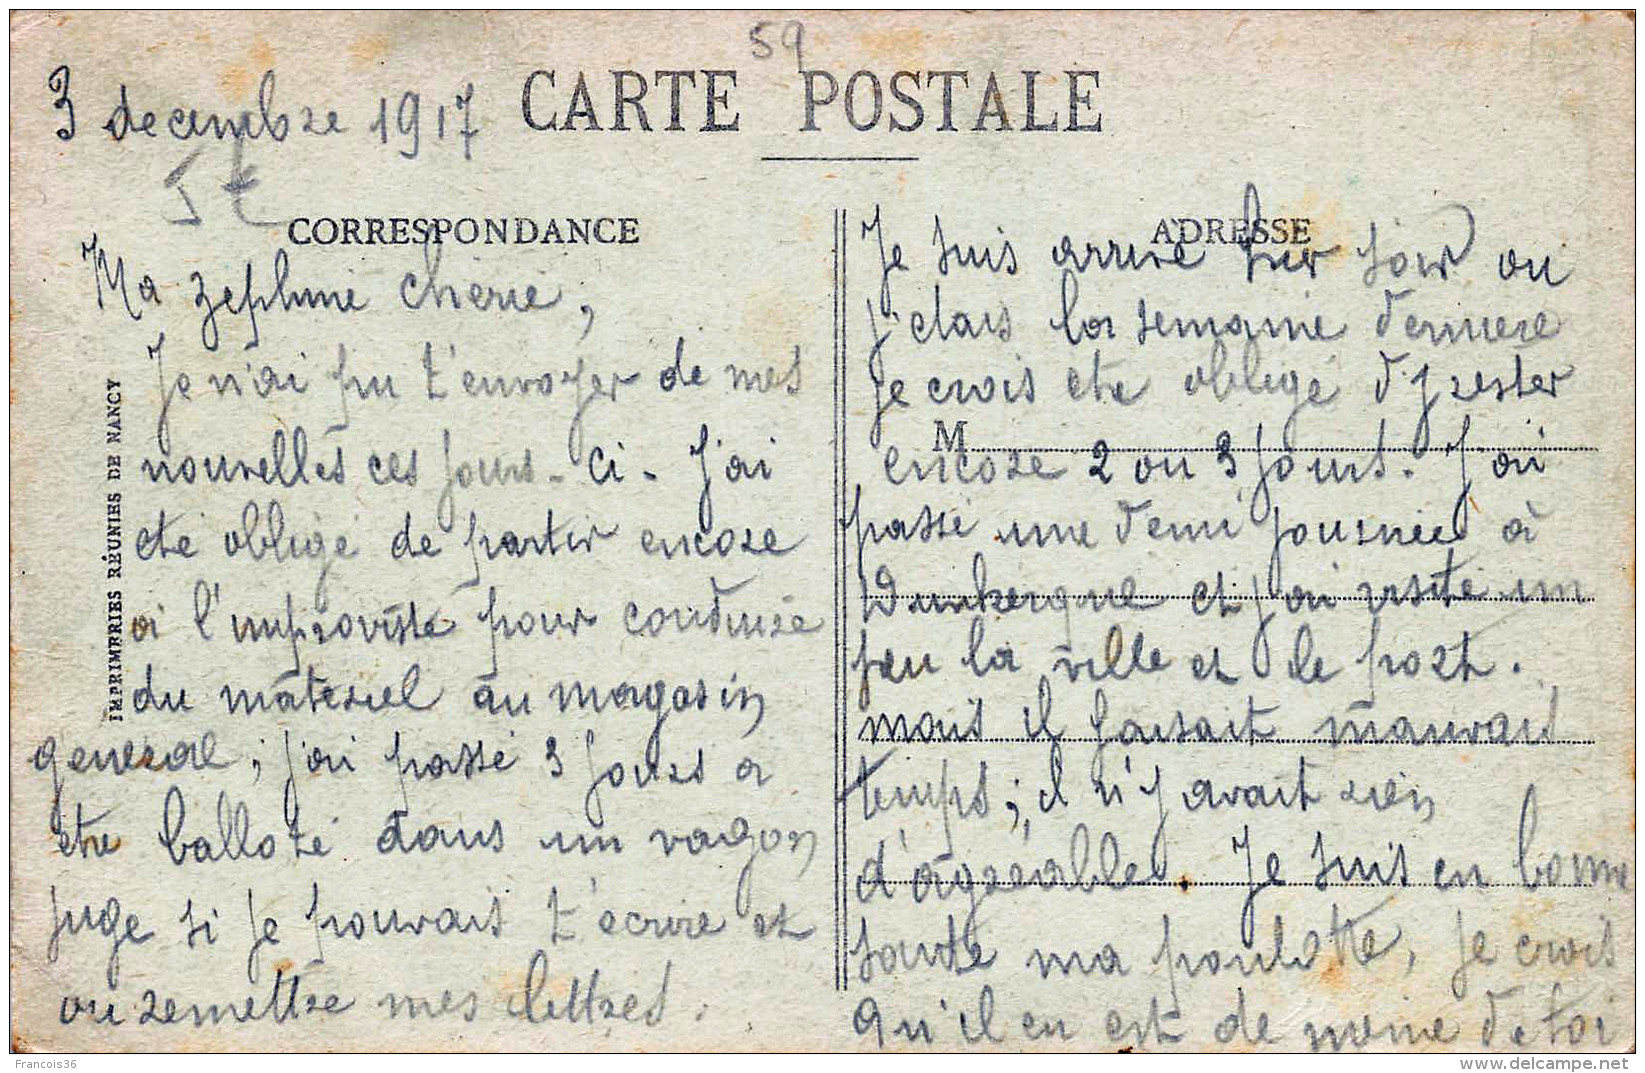 59
3 decembre 1917
CARTE POSTALE
CORRESPONDANCE
Ma zephine cherie,
Je n'ai pu t'envoyer de mes
nouvelles ces jours-ci - J'ai
ete obligé de partir encore
a l'improviste pour conduire
du materiel au magasin
general; j'ai passé 3 jours a
etre balloté dans un vagon
juge si je pouvais t'écrire et
ou remettre mes lettres.
ADRESSE
Je suis arrive hier soir ou
j'etais la semaine derniere
je crois etre obligé d'y rester
M
encore 2 ou 3 jours. J'ai
passé une demi journée à
Dunkerque et j'ai visité un
peu la ville et le port.
mais il faisait mauvais
temps; il n'y avait rien
d'agréable. Je suis en bonne
sante ma poulette, je crois
qu'il en est de meme de toi
IMPRIMERIES RÉUNIES DE NANCY
Francois36
delcampe.net